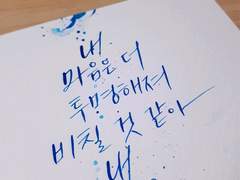 내
마음은 더
투명해져
비칠 것 같아
내